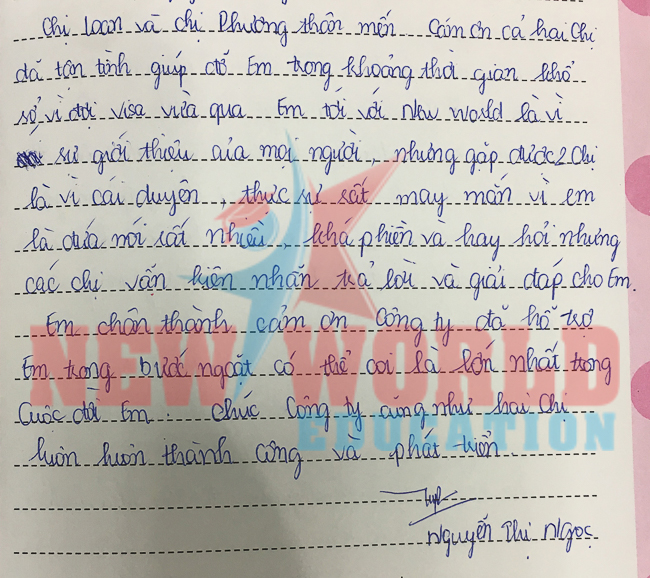 Chị Loan và chị Phương thân mến Cám ơn cả hai Chị
đã tân tình giúp đỡ Em trong khoảng thời gian khổ
sở vì đợi visa vừa qua Em tới với New World là vì
sự giới thiệu của mọi người, nhưng gặp được 2 Chị
là vì cái duyên, thực sự rất may mắn vì em
là đứa nói rất nhiều, khá phiền và hay hỏi nhưng
các chị vẫn kiên nhẫn trả lời và giải đáp cho Em.
Em chân thành cảm ơn Công ty đã hỗ trợ
Em trong bước ngoặt có thể coi là lớn nhất trong
Cuộc đời Em. Chúc Công ty cũng như hai Chị
luôn luôn thành công và phát triển.
Nguyễn Thị Ngọc
NEW WORLD
EDUCATION